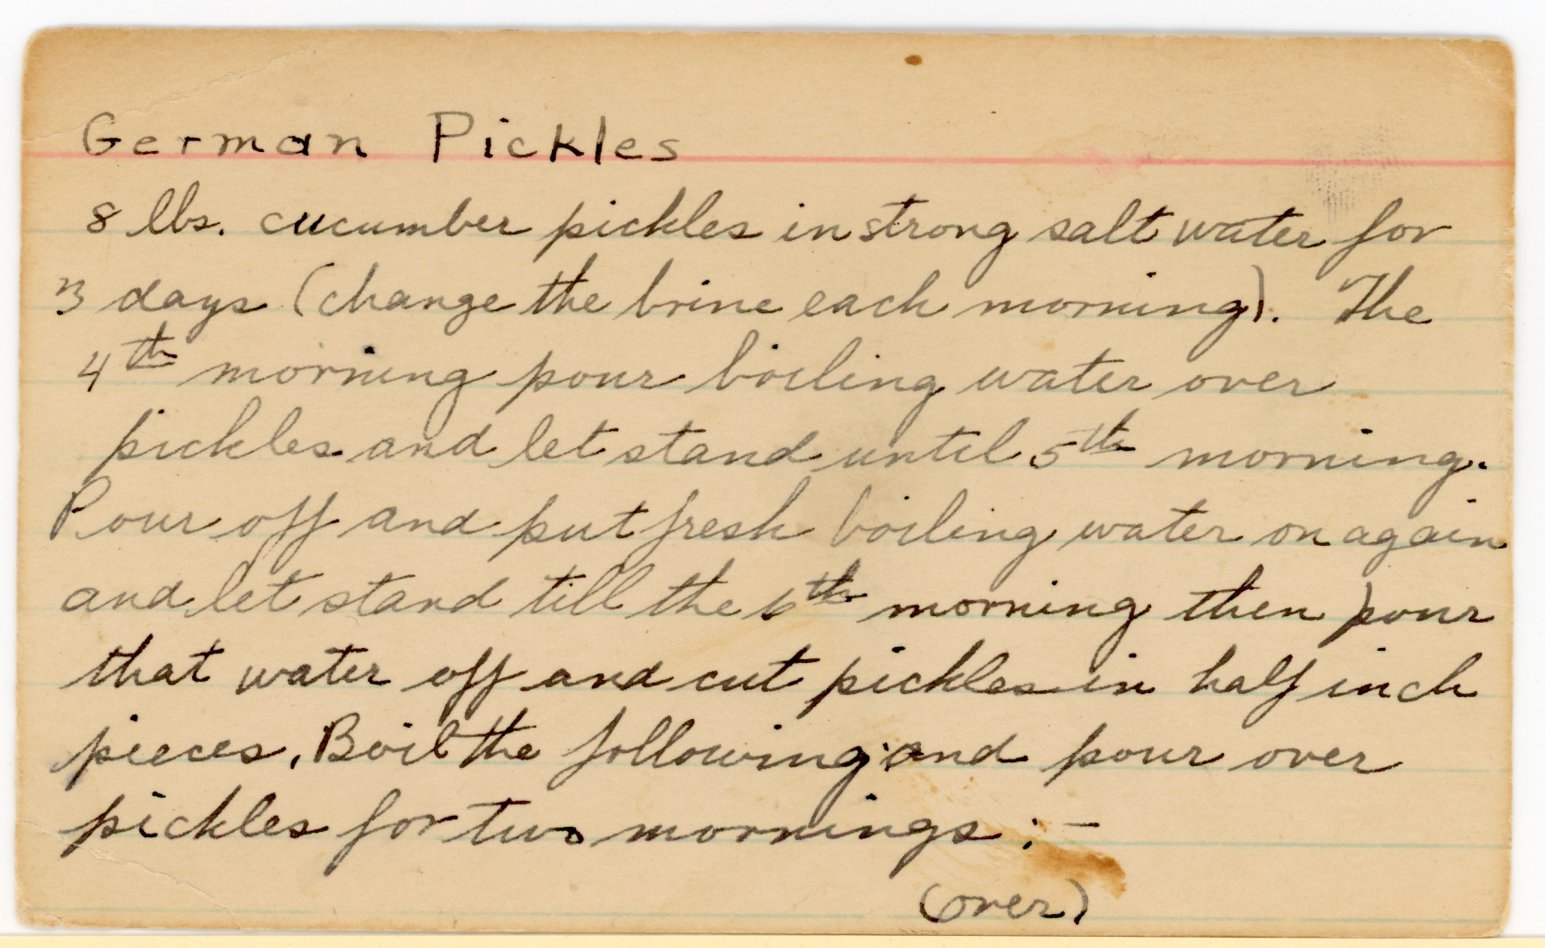 German Pickles
8 lbs. cucumber pickles in strong salt water for
3 days (change the brine each morning). The
4th morning pour boiling water over
pickles and let stand until 5th morning.
Pour off and put fresh boiling water on again
and let stand till the 6th morning then pour
that water off and cut pickles in half inch
pieces. Boil the following and pour over
pickles for two mornings :-
(over)